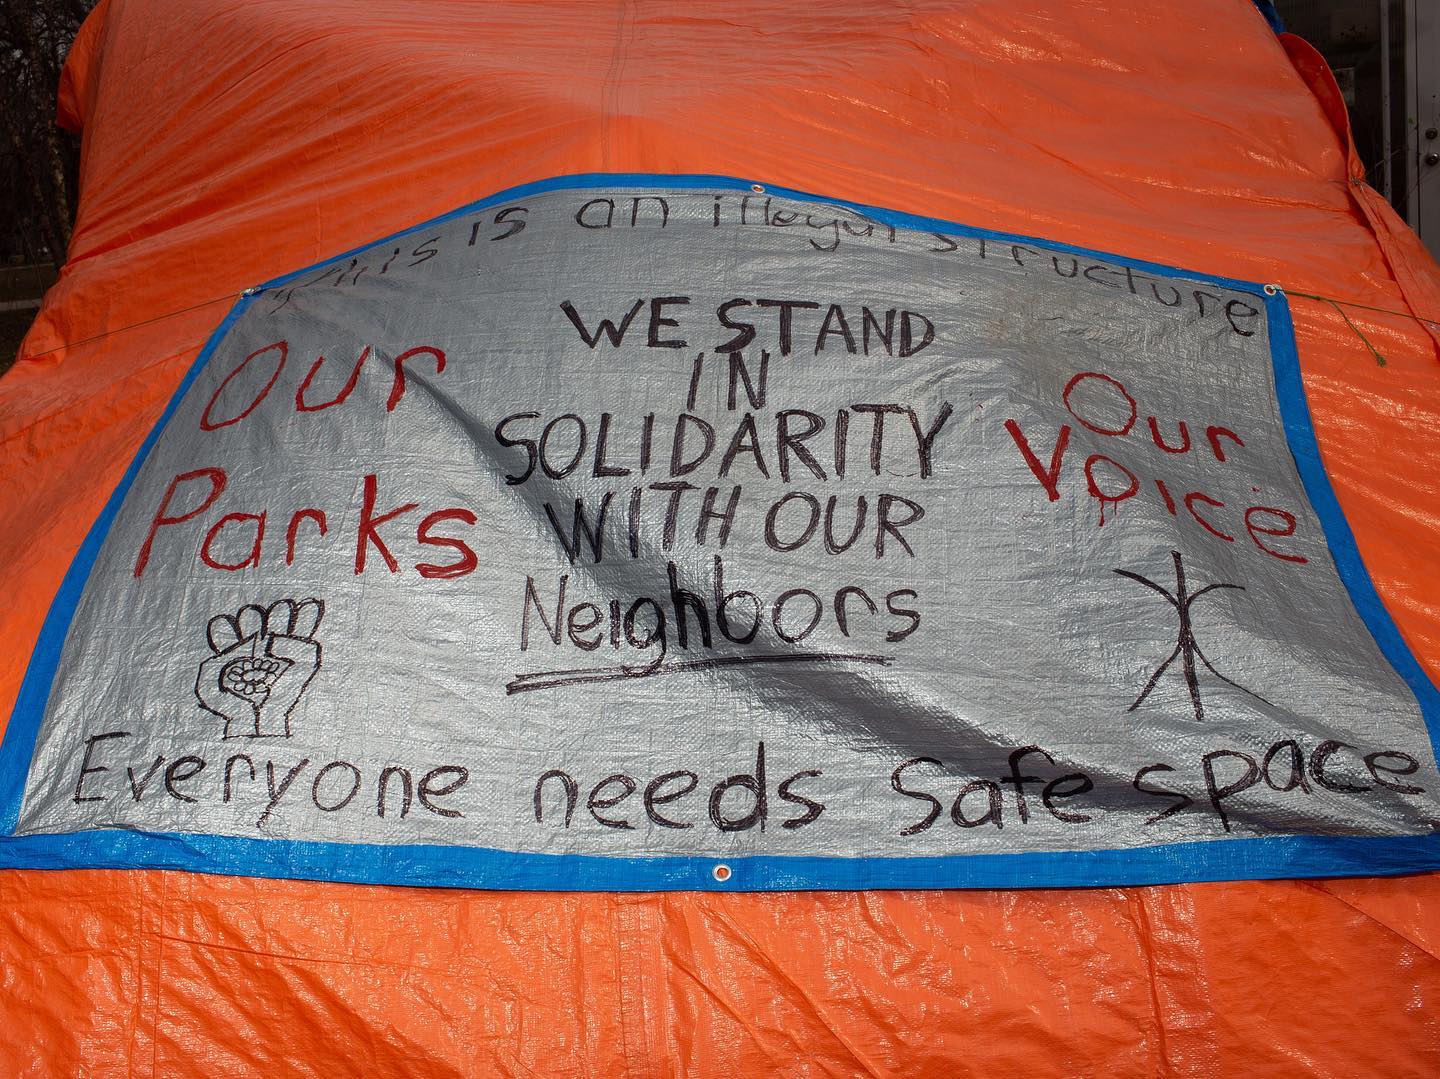 this is an illegal structure
Our
Parks
WE STAND
IN
SOLIDARITY
WITH OUR
Neighbors
Our
Voice
Everyone needs Safe space